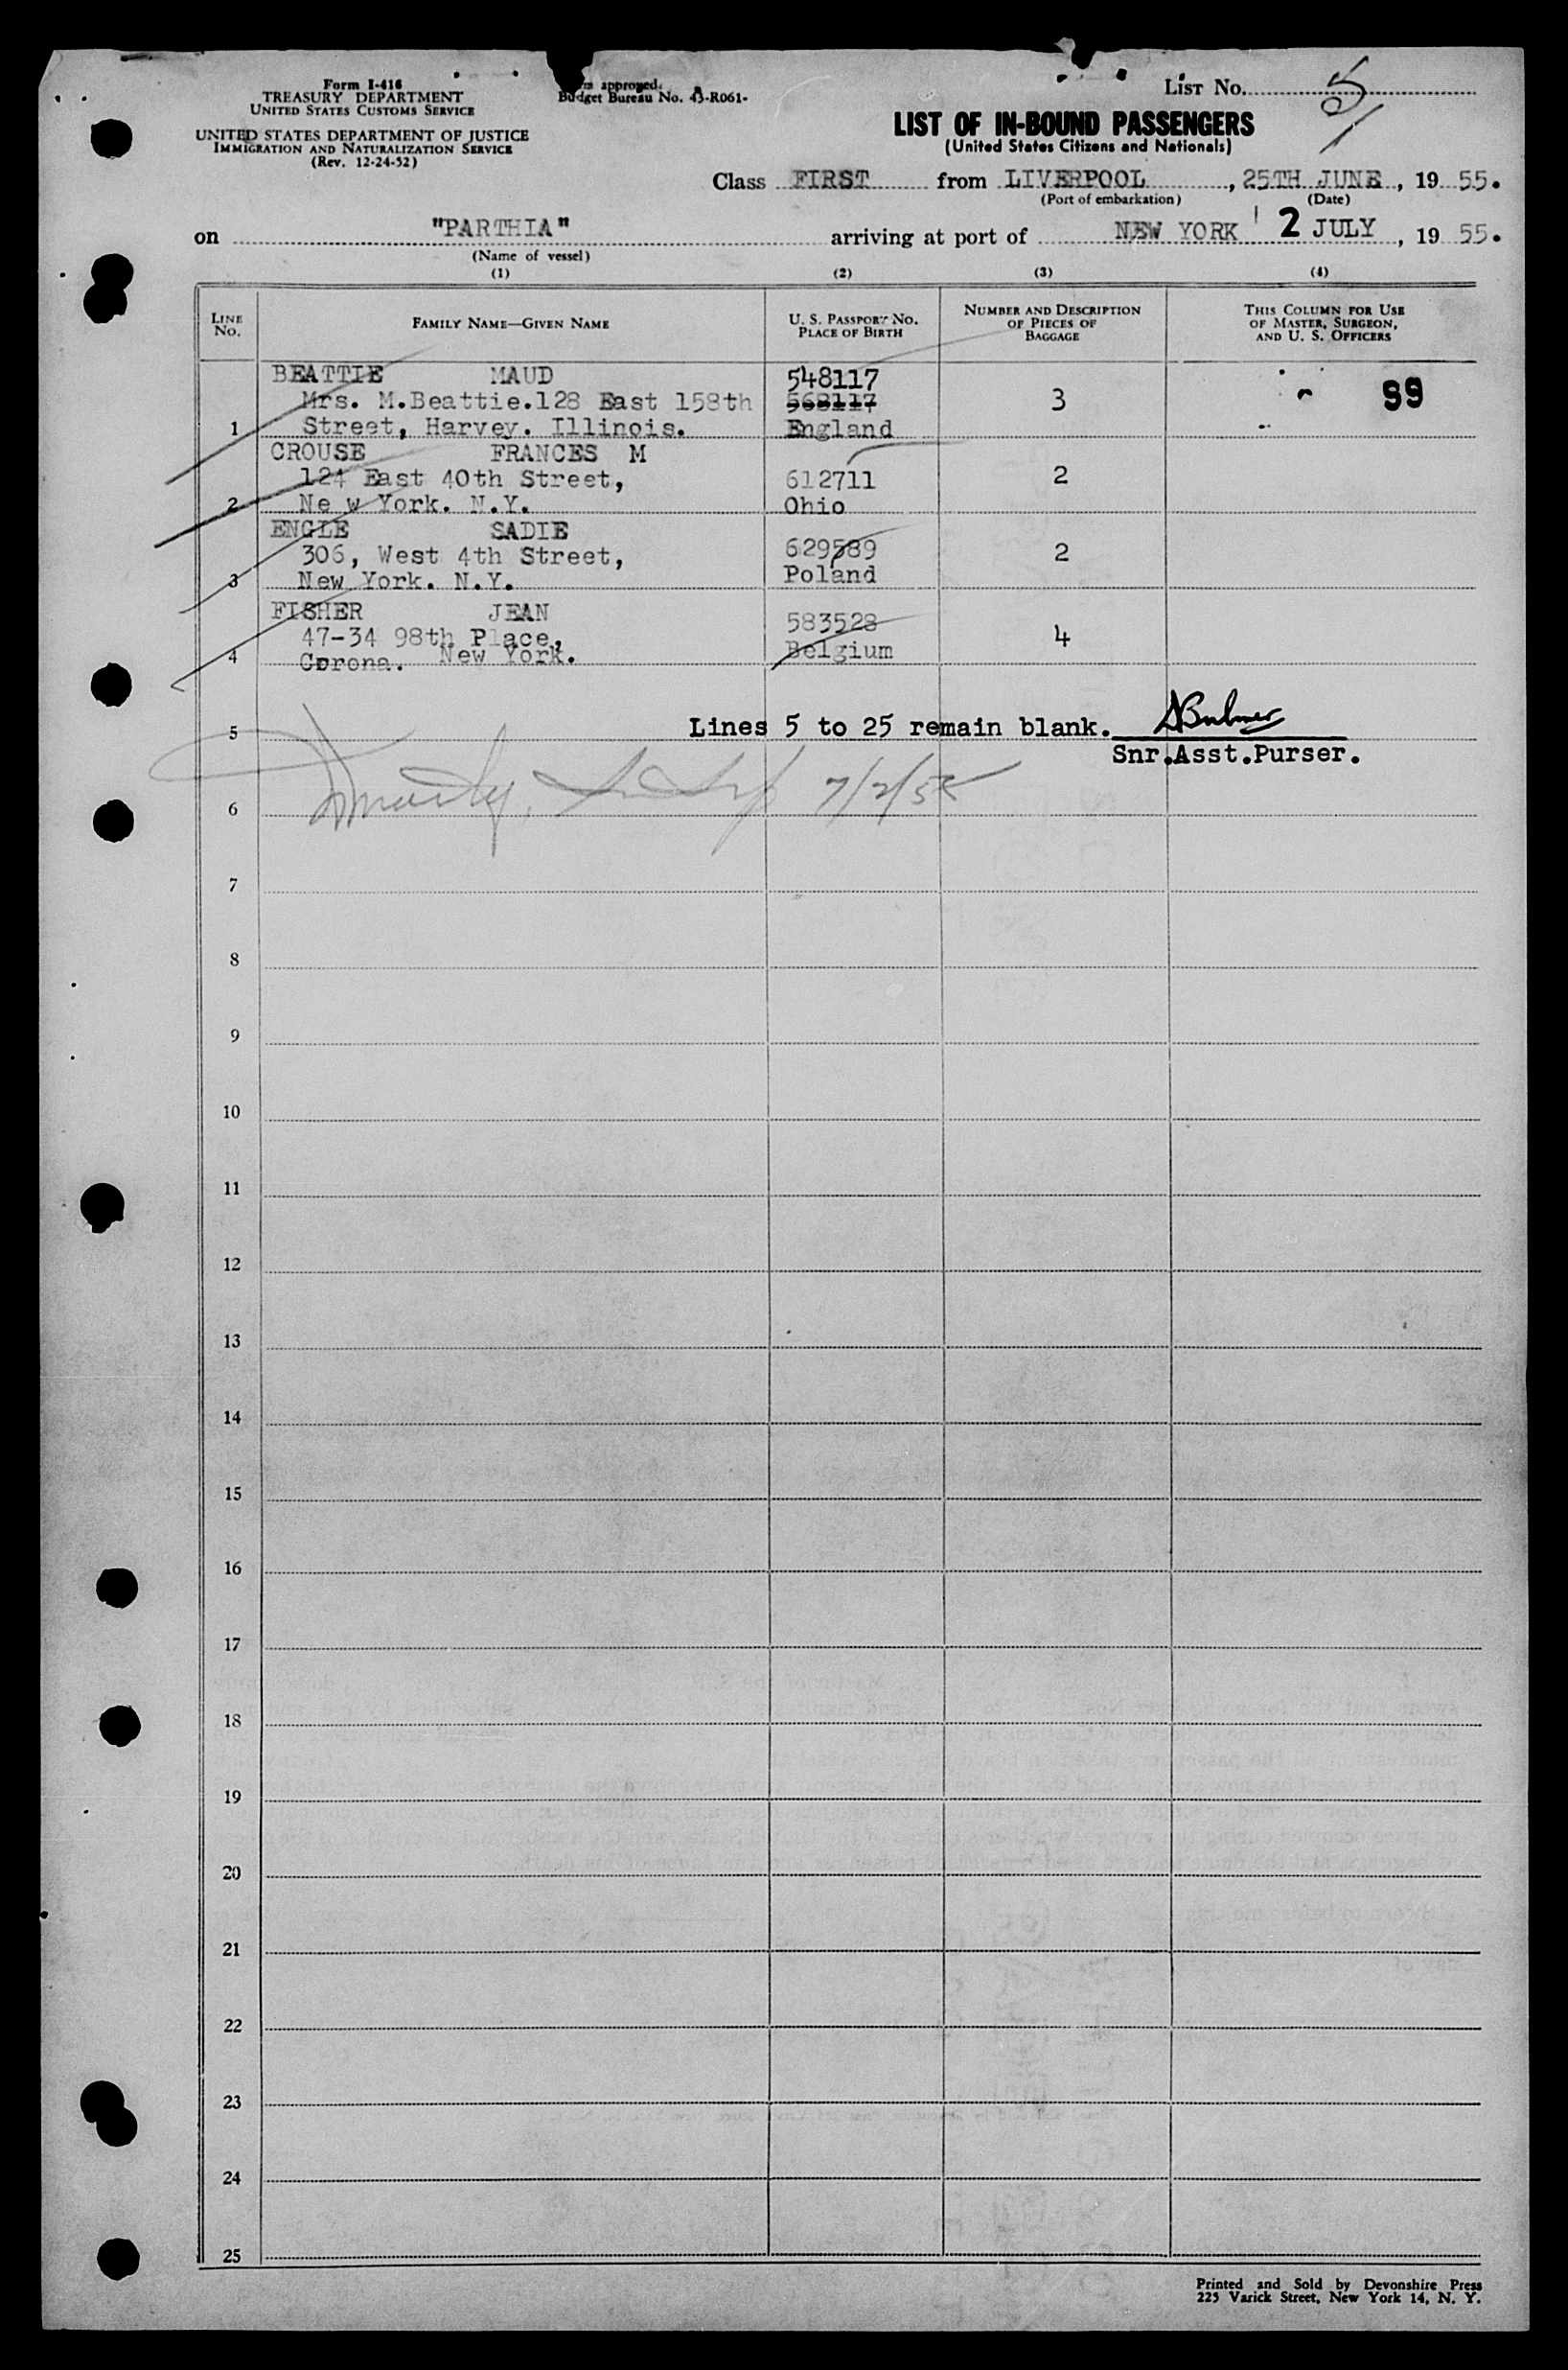 Form I-416
TREASURY DEPARTMENT
UNITED STATES CUSTOMS SERVICE
UNITED STATES DEPARTMENT OF JUSTICE
IMMIGRATION AND NATURALIZATION SERVICE
(Rev. 12-24-52)
approved.
Budget Bureau No. 43-R061-
LIST No. 5
LIST OF IN-BOUND PASSENGERS
(United States Citizens and Nationals)
Class FIRST from LIVERPOOL, 25TH JUNE, 19 55.
(Port of embarkation) (Date)
on "PARTHIA" arriving at port of NEW YORK 2 JULY, 19 55.
(Name of vessel)
(1) (2) (3) (4)
LINE No. FAMILY NAME—GIVEN NAME U. S. PASSPORT NO. PLACE OF BIRTH NUMBER AND DESCRIPTION OF PIECES OF BAGGAGE THIS COLUMN FOR USE OF MASTER, SURGEON, AND U. S. OFFICERS
BEATTIE MAUD 548117
Mrs. M.Beattie.128 East 158th 568117 3 99
1 Street, Harvey. Illinois. England
CROUSE FRANCES M
124 East 40th Street, 612711 2
2 Ne w York. N.Y. Ohio
ENGLE SADIE
306, West 4th Street, 629589 2
3 New York. N.Y. Poland
FISHER JEAN 583528
47-34 98th Place, 4
4 Corona. New York. Belgium
5 Lines 5 to 25 remain blank.
Snr.Asst.Purser.
6 7/2/55
7
8
9
10
11
12
13
14
15
16
17
18
19
20
21
22
23
24
25
Printed and Sold by Devonshire Press
225 Varick Street, New York 14, N. Y.